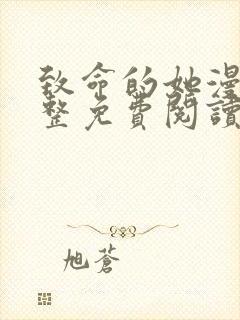 致命的她漫
整免費閱讀
旭蒼